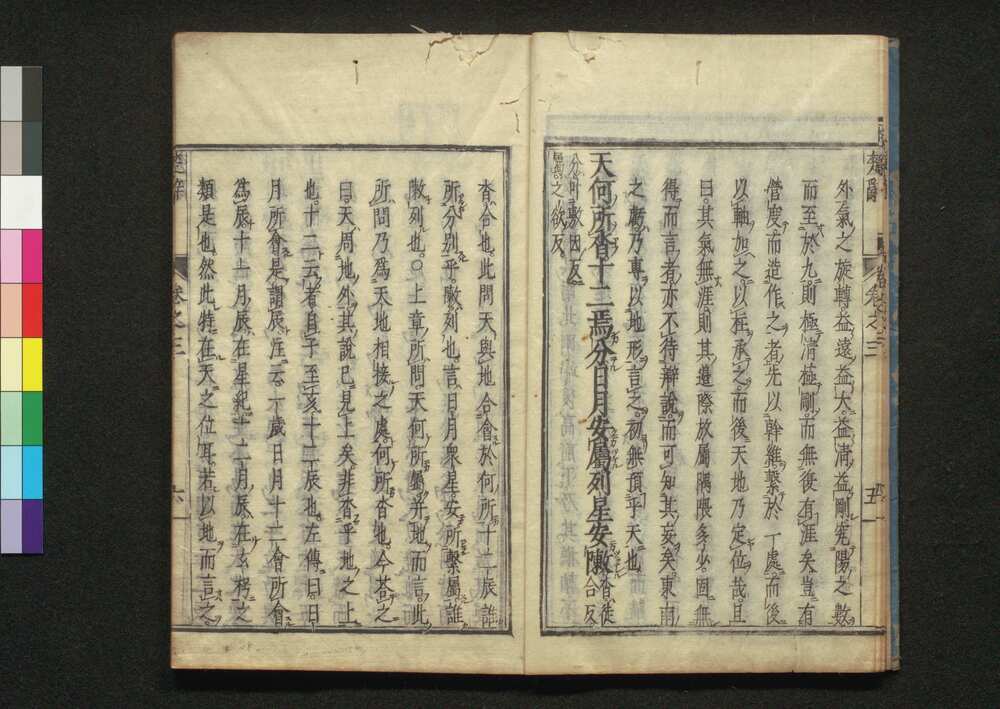 楚辭 卷之三 五
外氣之旋轉益遠益大益淸益剛究陽之數
而至於九則極淸極剛而無復有涯矣豈有
營度而造作之者先以幹維繫於一處而後
以軸加之以柱承之而後天地乃定位哉且
曰其氣無涯則其邊際放屬隅隈多少固無
得而言者亦不待辯說而可知其妄矣東南
之虧乃專以地形言之初無預乎天也
天何所沓十二焉分日月安屬列星安敶沓徒合反
分叶敷因反屬之欲反
沓合也此問天與地合會於何所十二辰誰
所分別乎敶列也言日月衆星安所繫屬誰
敶列也○上章所問天何所屬幷地而言此
所問乃爲天地相接之處何所沓也今荅之
曰天周地外其說已見上矣非沓乎地之上
也十二云者自子至亥十二辰也左傳曰日
月所會是謂辰注云一歲日月十二會所會
爲辰十一月辰在星紀十二月辰在玄枵之
類是也然此特在天之位耳若以地而言之
楚辭 卷之三 六